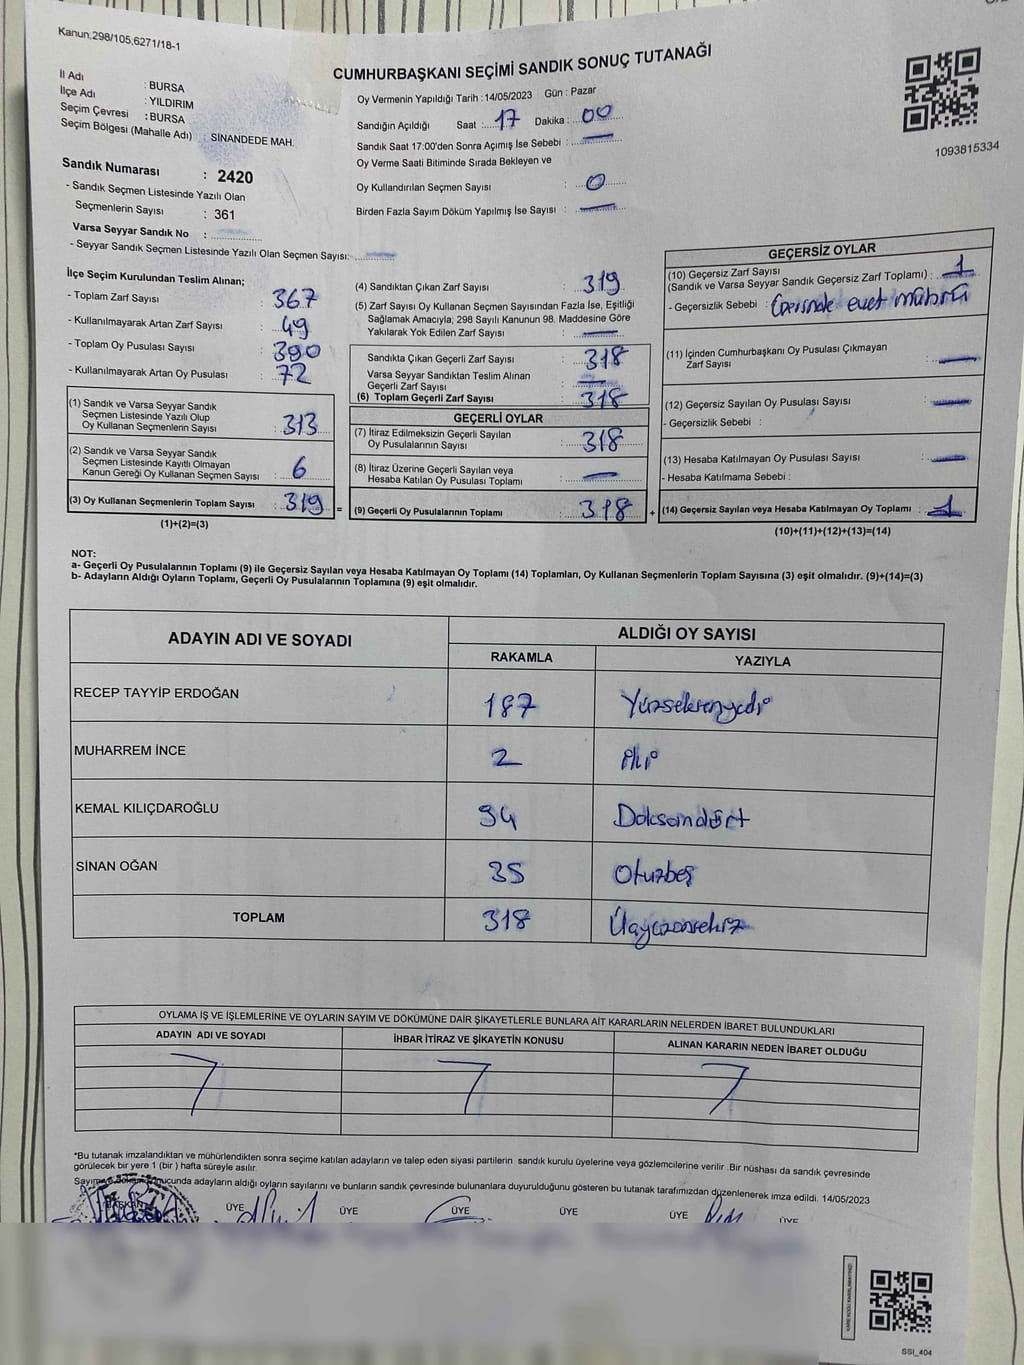 Kanun,298/105,6271/18-1
CUMHURBAŞKANI SEÇİMİ SANDIK SONUÇ TUTANAĞI
İl Adı : BURSA
İlçe Adı : YILDIRIM
Seçim Çevresi : BURSA
Seçim Bölgesi (Mahalle Adı) : SİNANDEDE MAH.
Oy Vermenin Yapıldığı Tarih : 14/05/2023 Gün : Pazar
Sandığın Açıldığı Saat : 17 Dakika : 00
Sandık Saat 17:00'den Sonra Açımış İse Sebebi : —
Oy Verme Saati Bitiminde Sırada Bekleyen ve
Oy Kullandırılan Seçmen Sayısı : 0
Birden Fazla Sayım Döküm Yapılmış İse Sayısı : —
1093815334
Sandık Numarası : 2420
- Sandık Seçmen Listesinde Yazılı Olan
Seçmenlerin Sayısı : 361
Varsa Seyyar Sandık No : —
- Seyyar Sandık Seçmen Listesinde Yazılı Olan Seçmen Sayısı: —
İlçe Seçim Kurulundan Teslim Alınan;
- Toplam Zarf Sayısı : 367
- Kullanılmayarak Artan Zarf Sayısı : 49
- Toplam Oy Pusulası Sayısı : 390
- Kullanılmayarak Artan Oy Pusulası : 72
(1) Sandık ve Varsa Seyyar Sandık
Seçmen Listesinde Yazılı Olup
Oy Kullanan Seçmenlerin Sayısı : 313
(2) Sandık ve Varsa Seyyar Sandık
Seçmen Listesinde Kayıtlı Olmayan
Kanun Gereği Oy Kullanan Seçmen Sayısı : 6
(3) Oy Kullanan Seçmenlerin Toplam Sayısı : 319 =
(1)+(2)=(3)
(4) Sandıktan Çıkan Zarf Sayısı : 319
(5) Zarf Sayısı Oy Kullanan Seçmen Sayısından Fazla İse, Eşitliği
Sağlamak Amacıyla, 298 Sayılı Kanunun 98. Maddesine Göre
Yakılarak Yok Edilen Zarf Sayısı : —
Sandıkta Çıkan Geçerli Zarf Sayısı : 318
Varsa Seyyar Sandıktan Teslim Alınan
Geçerli Zarf Sayısı : —
(6) Toplam Geçerli Zarf Sayısı : 318
GEÇERLİ OYLAR
(7) İtiraz Edilmeksizin Geçerli Sayılan
Oy Pusulalarının Sayısı : 318
(8) İtiraz Üzerine Geçerli Sayılan veya
Hesaba Katılan Oy Pusulası Toplamı : —
(9) Geçerli Oy Pusulalarının Toplamı : 318 +
GEÇERSİZ OYLAR
(10) Geçersiz Zarf Sayısı
(Sandık ve Varsa Seyyar Sandık Geçersiz Zarf Toplamı) : 1
- Geçersizlik Sebebi : Üzerinde evet mührü
(11) İçinden Cumhurbaşkanı Oy Pusulası Çıkmayan
Zarf Sayısı : —
(12) Geçersiz Sayılan Oy Pusulası Sayısı : —
- Geçersizlik Sebebi :
(13) Hesaba Katılmayan Oy Pusulası Sayısı : —
- Hesaba Katılmama Sebebi :
(14) Geçersiz Sayılan veya Hesaba Katılmayan Oy Toplamı : 1
(10)+(11)+(12)+(13)=(14)
NOT:
a- Geçerli Oy Pusulalarının Toplamı (9) ile Geçersiz Sayılan veya Hesaba Katılmayan Oy Toplamı (14) Toplamları, Oy Kullanan Seçmenlerin Toplam Sayısına (3) eşit olmalıdır. (9)+(14)=(3)
b- Adayların Aldığı Oyların Toplamı, Geçerli Oy Pusulalarının Toplamına (9) eşit olmalıdır.
ADAYIN ADI VE SOYADI ALDIĞI OY SAYISI
RAKAMLA YAZIYLA
RECEP TAYYİP ERDOĞAN 187 Yüzseksenyedi
MUHARREM İNCE 2 iki
KEMAL KILIÇDAROĞLU 94 Doksandört
SİNAN OĞAN 35 Otuzbeş
TOPLAM 318 Üçyüzonsekiz
OYLAMA İŞ VE İŞLEMLERİNE VE OYLARIN SAYIM VE DÖKÜMÜNE DAİR ŞİKAYETLERLE BUNLARA AİT KARARLARIN NELERDEN İBARET BULUNDUKLARI
ADAYIN ADI VE SOYADI İHBAR İTİRAZ VE ŞİKAYETİN KONUSU ALINAN KARARIN NEDEN İBARET OLDUĞU
*Bu tutanak imzalandıktan ve mühürlendikten sonra seçime katılan adayların ve talep eden siyasi partilerin sandık kurulu üyelerine veya gözlemcilerine verilir. Bir nüshası da sandık çevresinde
görülecek bir yere 1 (bir ) hafta süreyle asılır.
Sayım ve döküm sonucunda adayların aldığı oyların sayılarını ve bunların sandık çevresinde bulunanlara duyurulduğunu gösteren bu tutanak tarafımızdan düzenlenerek imza edildi. 14/05/2023
BAŞKAN ÜYE ÜYE ÜYE ÜYE ÜYE ÜYE
SSI_404